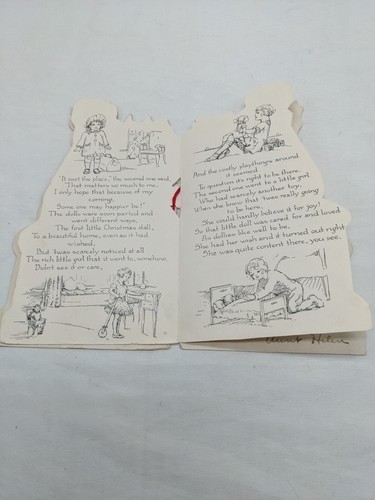 "It isn't the place," the second one said,
"That matters so much to me.
I only hope that because of my
coming,
Some one may happier be!"
The dolls were soon parted and
went different ways,
The first little Christmas doll,
To a beautiful home, even as it had
wished,
But 'twas scarcely noticed at all
The rich little girl that it went to, somehow,
Didn't see it or care,
And the costly playthings around
it seemed
To question its right to be there.
The second one went to a little girl
Who had scarcely another toy,
When she knew that 'twas really going
to be hers,
She could hardly believe it for joy!
So that little doll was cared for and loved
As dollies like well to be,
She had her wish and it turned out right
She was quite content there, you see.
Aunt Helen